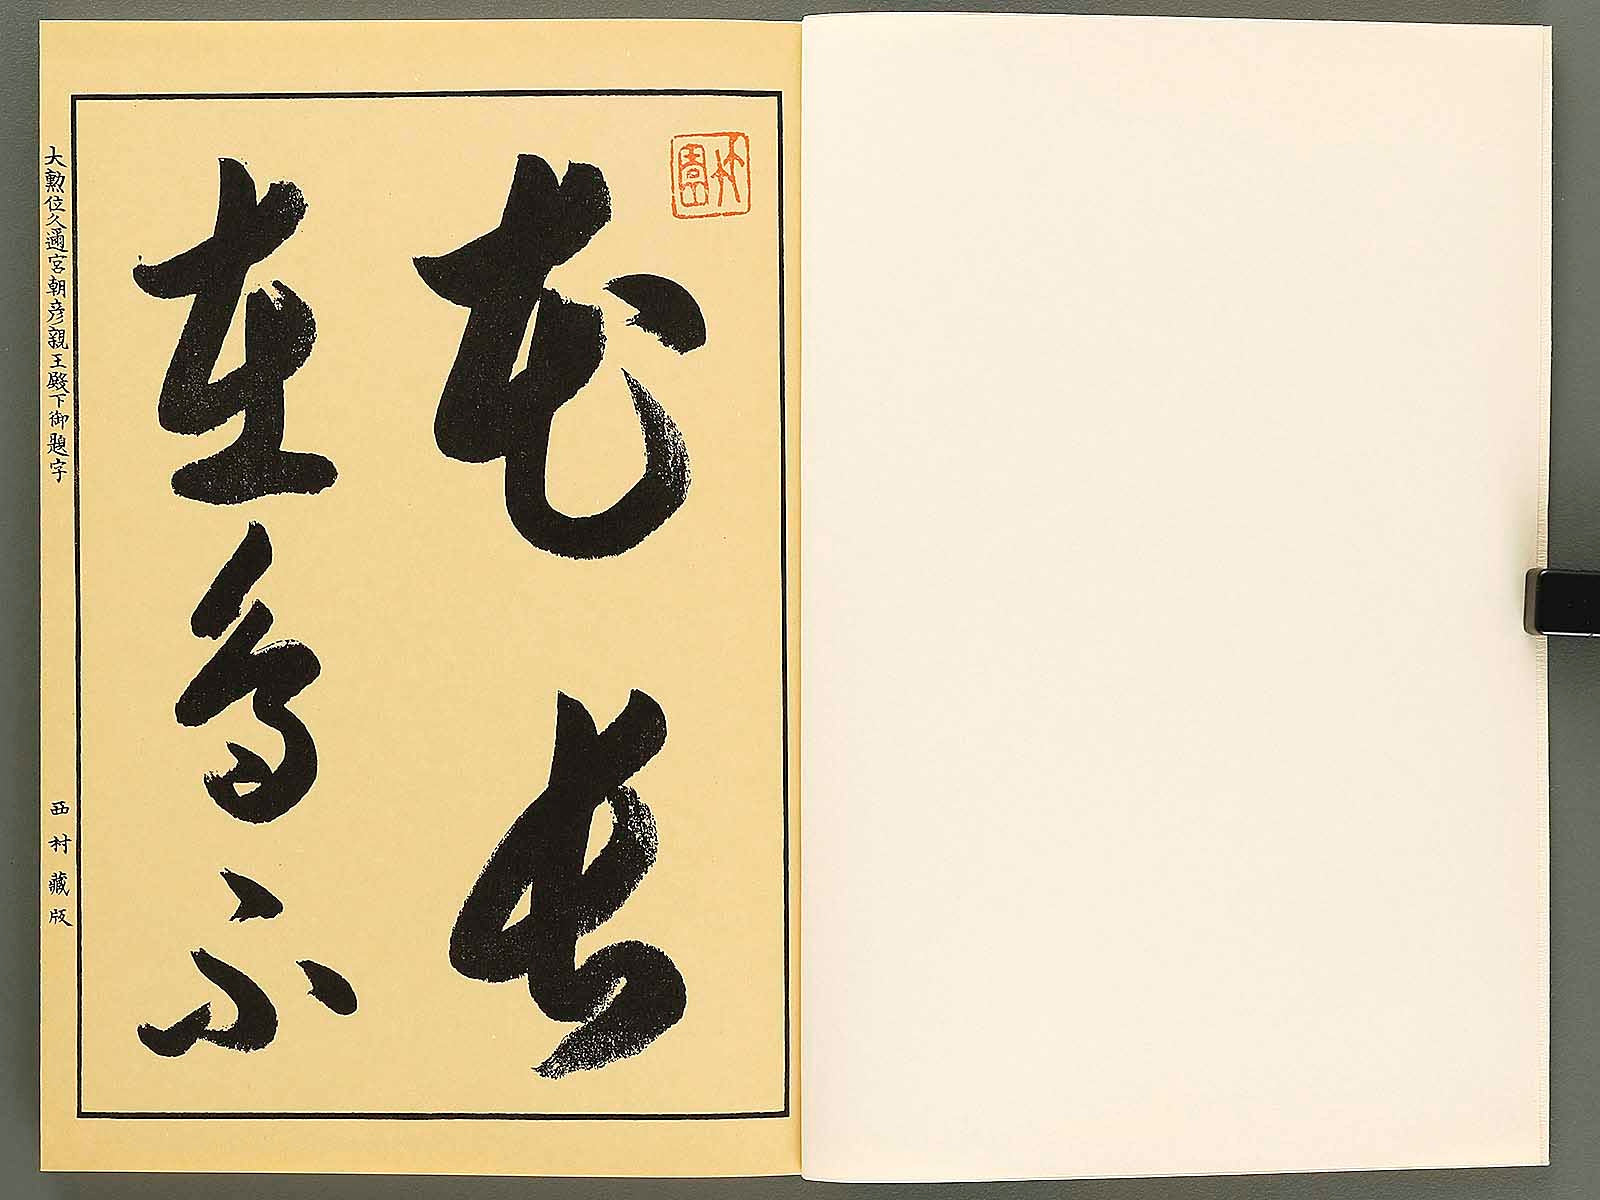 竹園
花長
在鳥不
大勲位久邇宮朝彦親王殿下御題字
西村藏版